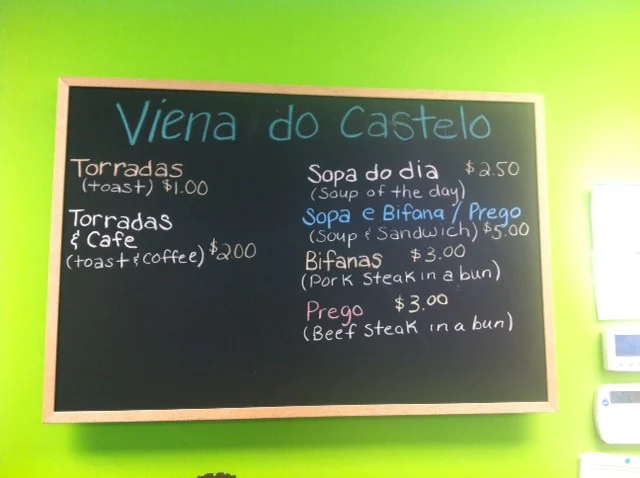 Viena do Castelo
Torradas
(toast) $1.00
Torradas
& Cafe
(toast & coffee) $200
Sopa do dia $2.50
(Soup of the day)
Sopa e Bifana / Prego
(Soup & Sandwich) $5.00
Bifanas $3.00
(Pork Steak in a bun)
Prego $3.00
(Beef Steak in a bun)